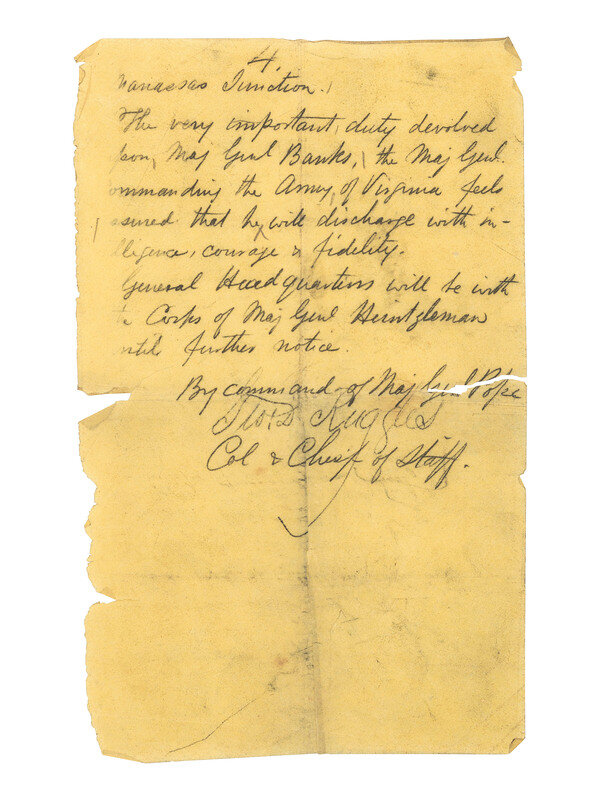 4.
anassas Junction.
The very important duty devolved
pon Maj Genl Banks, the Maj Genl.
ommanding the Army of Virginia feels
ssured that he will discharge with in-
lligence, courage & fidelity.
General Headquarters will be with
e Corps of Maj Genl Heintzleman
ntil further notice.
By command of Maj Genl Pope
Geo D Ruggles
Col & Chief of Staff.